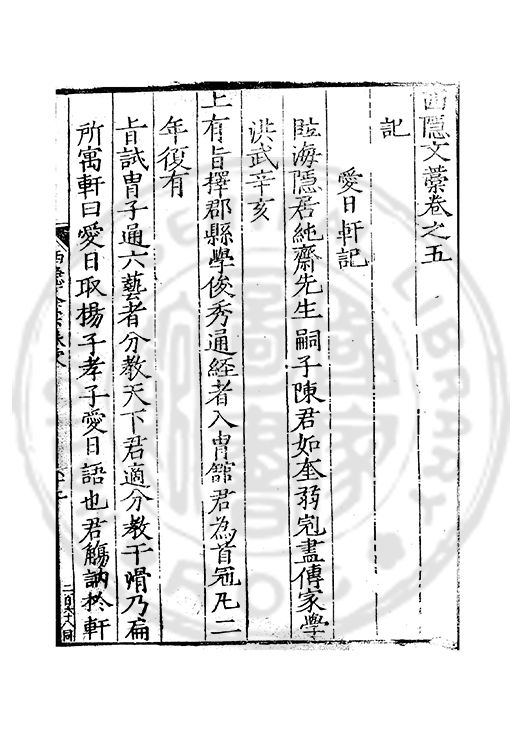 西隱文藁卷之五
記
愛日軒記
臨海隱居純齋先生嗣子陳君如奎弱冠盡傳家學
洪武辛亥
上有旨擇郡縣學俊秀通經者入胄館君為首冠凡二
年復有
旨試胄子通六藝者分教天下君適分教于滑乃扁
所寓軒曰愛日取揚子孝子愛日語也君觴訥於軒